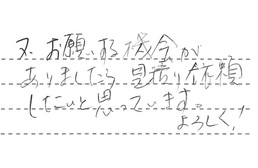 又、お願いする機会が
ありましたら見積り依頼
したいと思っています。
よろしく!